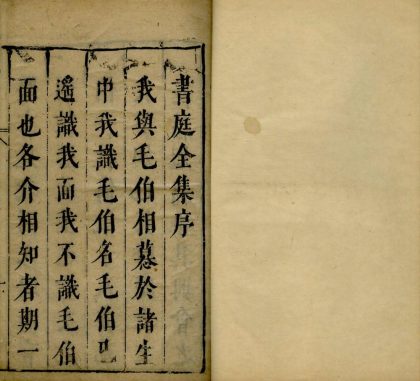 書庭全集序
我與毛伯相慕於諸生
中我識毛伯名毛伯已
遥識我面我不識毛伯
面也各介相知者期一